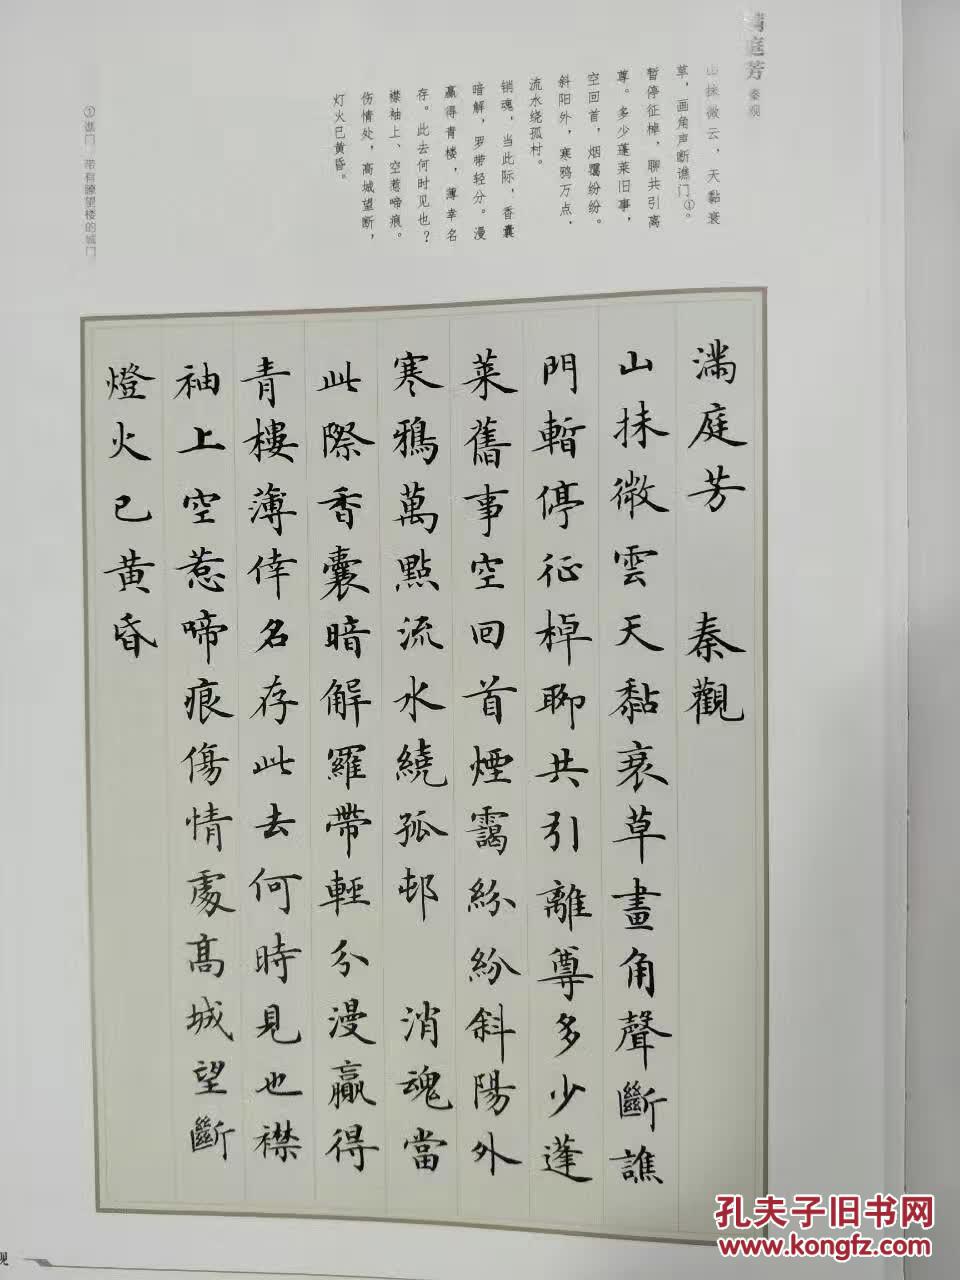 满庭芳 秦观
山抹微云，天黏衰
草，画角声断谯门①。
暂停征棹，聊共引离
尊。多少蓬莱旧事，
空回首，烟霭纷纷。
斜阳外，寒鸦万点，
流水绕孤村。
销魂，当此际，香囊
暗解，罗带轻分。漫
赢得青楼，薄幸名
存。此去何时见也？
襟袖上、空惹啼痕。
伤情处，高城望断，
灯火已黄昏。
①谯门：带有瞭望楼的城门
滿庭芳 秦觀
山抹微雲天黏衰草畫角聲斷譙
門暫停征棹聊共引離尊多少蓬
萊舊事空回首煙靄紛紛斜陽外
寒鴉萬點流水繞孤邨 消魂當
此際香囊暗解羅帶輕分漫贏得
青樓薄倖名存此去何時見也襟
袖上空惹啼痕傷情處高城望斷
燈火已黄昏
观
孔夫子旧书网
www.kongfz.com